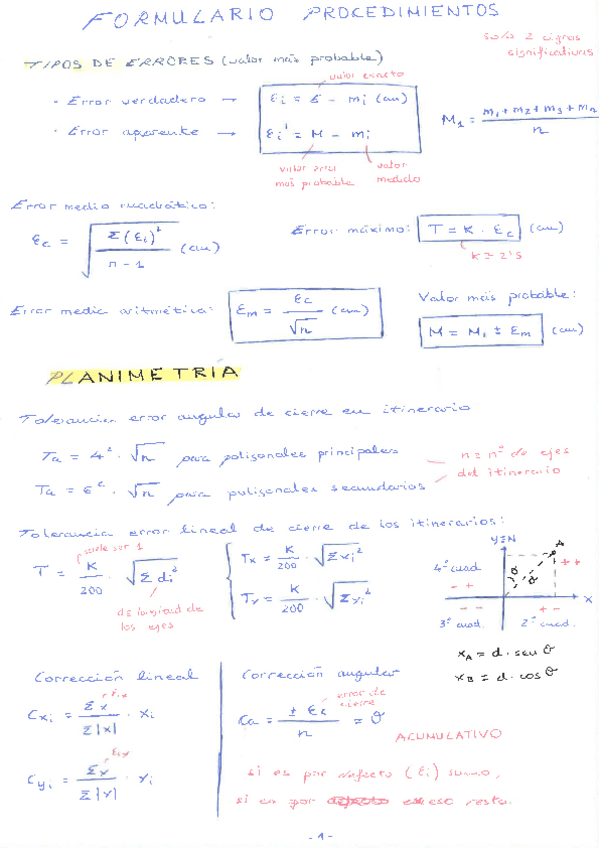 FORMULARIO PROCEDIMIENTOS
solo 2 cifras
significativas
TIPOS DE ERRORES (valor más probable)
valor exacto
· Error verdadero → Ei = E - mi (cm)
· Error aparente → Ei' = M - mi
M1 = (m1 + m2 + m3 + mn) / n
valor
más probable
valor
medido
Error medio cuadrático:
Ec = √(Σ(Ei)² / (n - 1)) (cm)
Error máximo: T = K · Ec (cm)
K = 2'5
Error media aritmética: Em = Ec / √n (cm)
Valor más probable:
M = M1 ± Em (cm)
PLANIMETRÍA
Tolerancia error angular de cierre en itinerario
Ta = 4ᶜ · √n para poligonales principales
Ta = 6ᶜ · √n para poligonales secundarios
n = nº de ejes
del itinerario
Tolerancia error lineal de cierre de los itinerarios:
suele ser 1
T = K/200 · √(Σ di²)
de longitud de
los ejes
Tx = K/200 · √(Σxi²)
Ty = K/200 · √(Σyi²)
Y≡N
A
4º cuad.
- +
+ +
θ
X
- -
+ -
3º cuad.
2º cuad.
xA = d · sen θ
xB = d · cos θ
Corrección lineal
Cxi = Σx / Σ|x| · xi
Cyi = Σy / Σ|y| · yi
Corrección angular
error de
cierre
Ca = ± Ec / n = θ
ACUMULATIVO
si es por defecto (Ei) sumo,
si es por exceso resta.
- 1 -